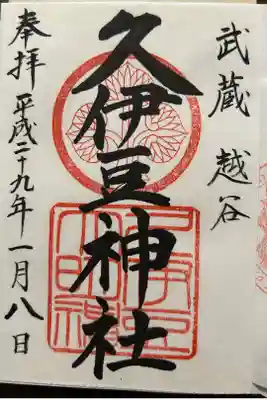 武蔵 越谷
久伊豆神社
奉拝 平成二十九年一月八日